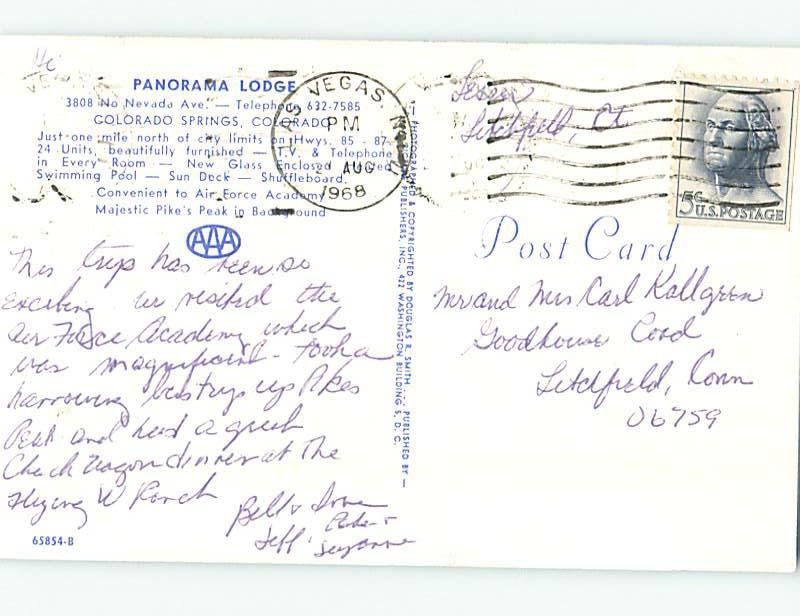 Hi
PANORAMA LODGE
3808 No Nevada Ave. — Telephone 632-7585
COLORADO SPRINGS, COLORADO
Just one mile north of city limits on Hwys. 85 - 87
24 Units, beautifully furnished — T.V. & Telephone
in Every Room — New Glass Enclosed
Swimming Pool — Sun Deck — Shuffleboard.
Convenient to Air Force Academy
Majestic Pike's Peak in Background
AAA
This trip has been so
exciting we visited the
Air Force Academy which
was magnificent - took a
harrowing bus trip up Pikes
Peak and had a great
Chuck Wagon dinner at the
Flying W Ranch
Bill &
Jeff Suzanne
65854-B
PHOTOGRAPHED & COPYRIGHTED BY DOUGLAS R. SMITH . . . PUBLISHED BY —
PUBLISHERS, INC., 422 WASHINGTON BUILDING 5, D. C.
LAS VEGAS, N
PM
AUG
1968
Litchfield, Ct
5¢ U.S. POSTAGE
Post Card
Mr and Mrs Carl Kallgren
Goodhouse Cord
Litchfield, Conn
06759